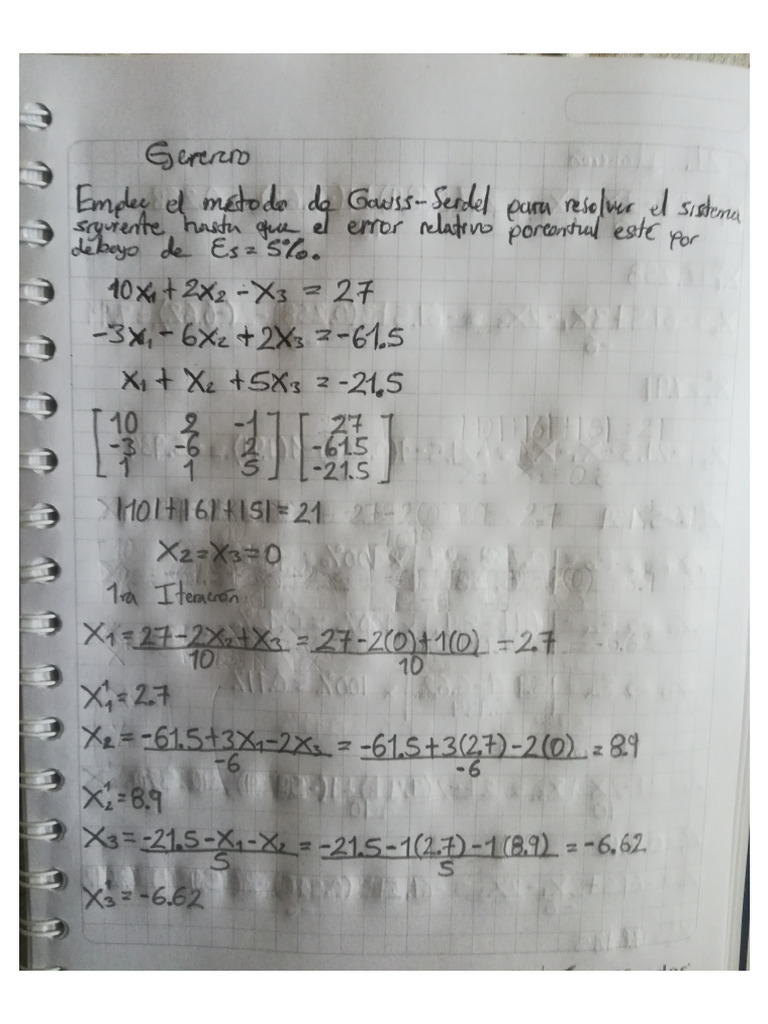 Ejercicio
Emplee el método de Gauss-Seidel para resolver el sistema
siguiente hasta que el error relativo porcentual esté por
debajo de Es=5%.
10x₁+2x₂-x₃=27
-3x₁-6x₂+2x₃=-61.5
x₁+x₂+5x₃=-21.5
[10 2 -1] [27]
[-3 -6 2] [-61.5]
[1 1 5] [-21.5]
|10|+|6|+|5|=21
x₂=x₃=0
1ra Iteración
x₁=(27-2x₂+x₃)/10=(27-2(0)+1(0))/10=2.7
x₁¹=2.7
x₂=(-61.5+3x₁-2x₃)/-6=(-61.5+3(2.7)-2(0))/-6=8.9
x₂¹=8.9
x₃=(-21.5-x₁-x₂)/5=(-21.5-1(2.7)-1(8.9))/5=-6.62
x₃¹=-6.62